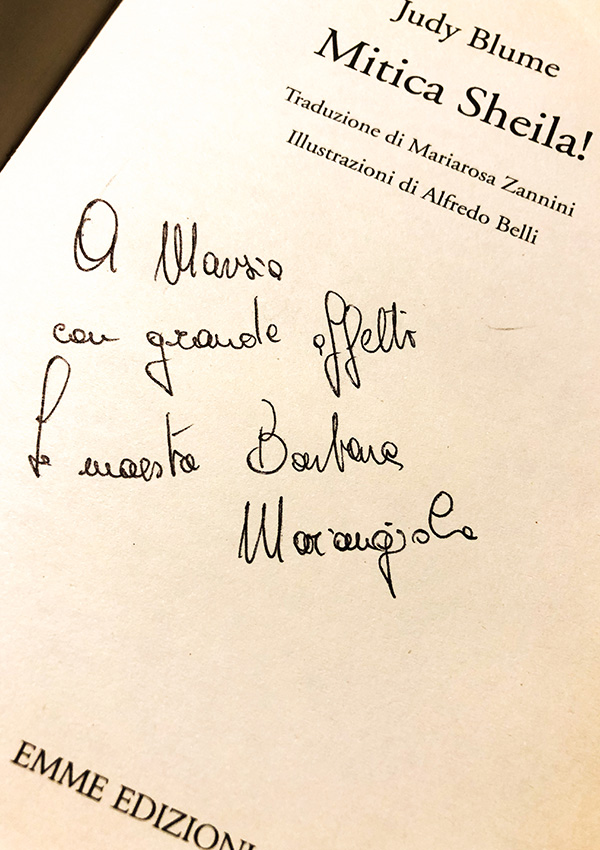 Judy Blume
Mitica Sheila!
Traduzione di Mariarosa Zannini
Illustrazioni di Alfredo Belli
A Marzia
con grande affetto
La maestra Barbara
Mariangiola
EMME EDIZIONI